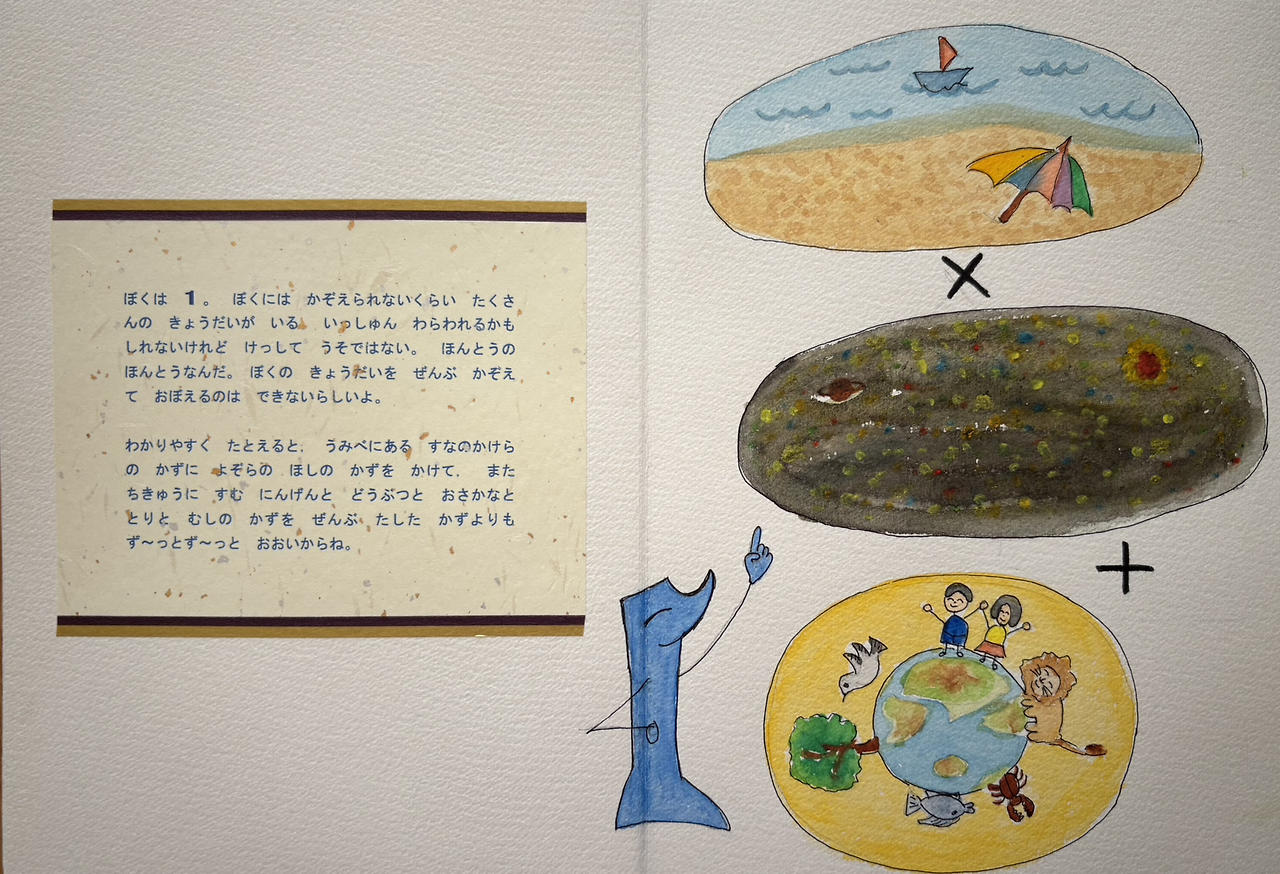 ぼくは　1。　ぼくには　かぞえられないくらい　たくさ
んの　きょうだいが　いる。　いっしゅん　わらわれるかも
しれないけれど　けっして　うそではない。　ほんとうの
ほんとうなんだ。　ぼくの　きょうだいを　ぜんぶ　かぞえ
て　おぼえるのは　できないらしいよ。
わかりやすく　たとえると、　うみべにある　すなのかけら
の　かずに　よぞらの　ほしの　かずを　かけて、　また
ちきゅうに　すむ　にんげんと　どうぶつと　おさかなと
とりと　むしの　かずを　ぜんぶ　たした　かずよりも
ず〜っとず〜っと　おおいからね。
×
+